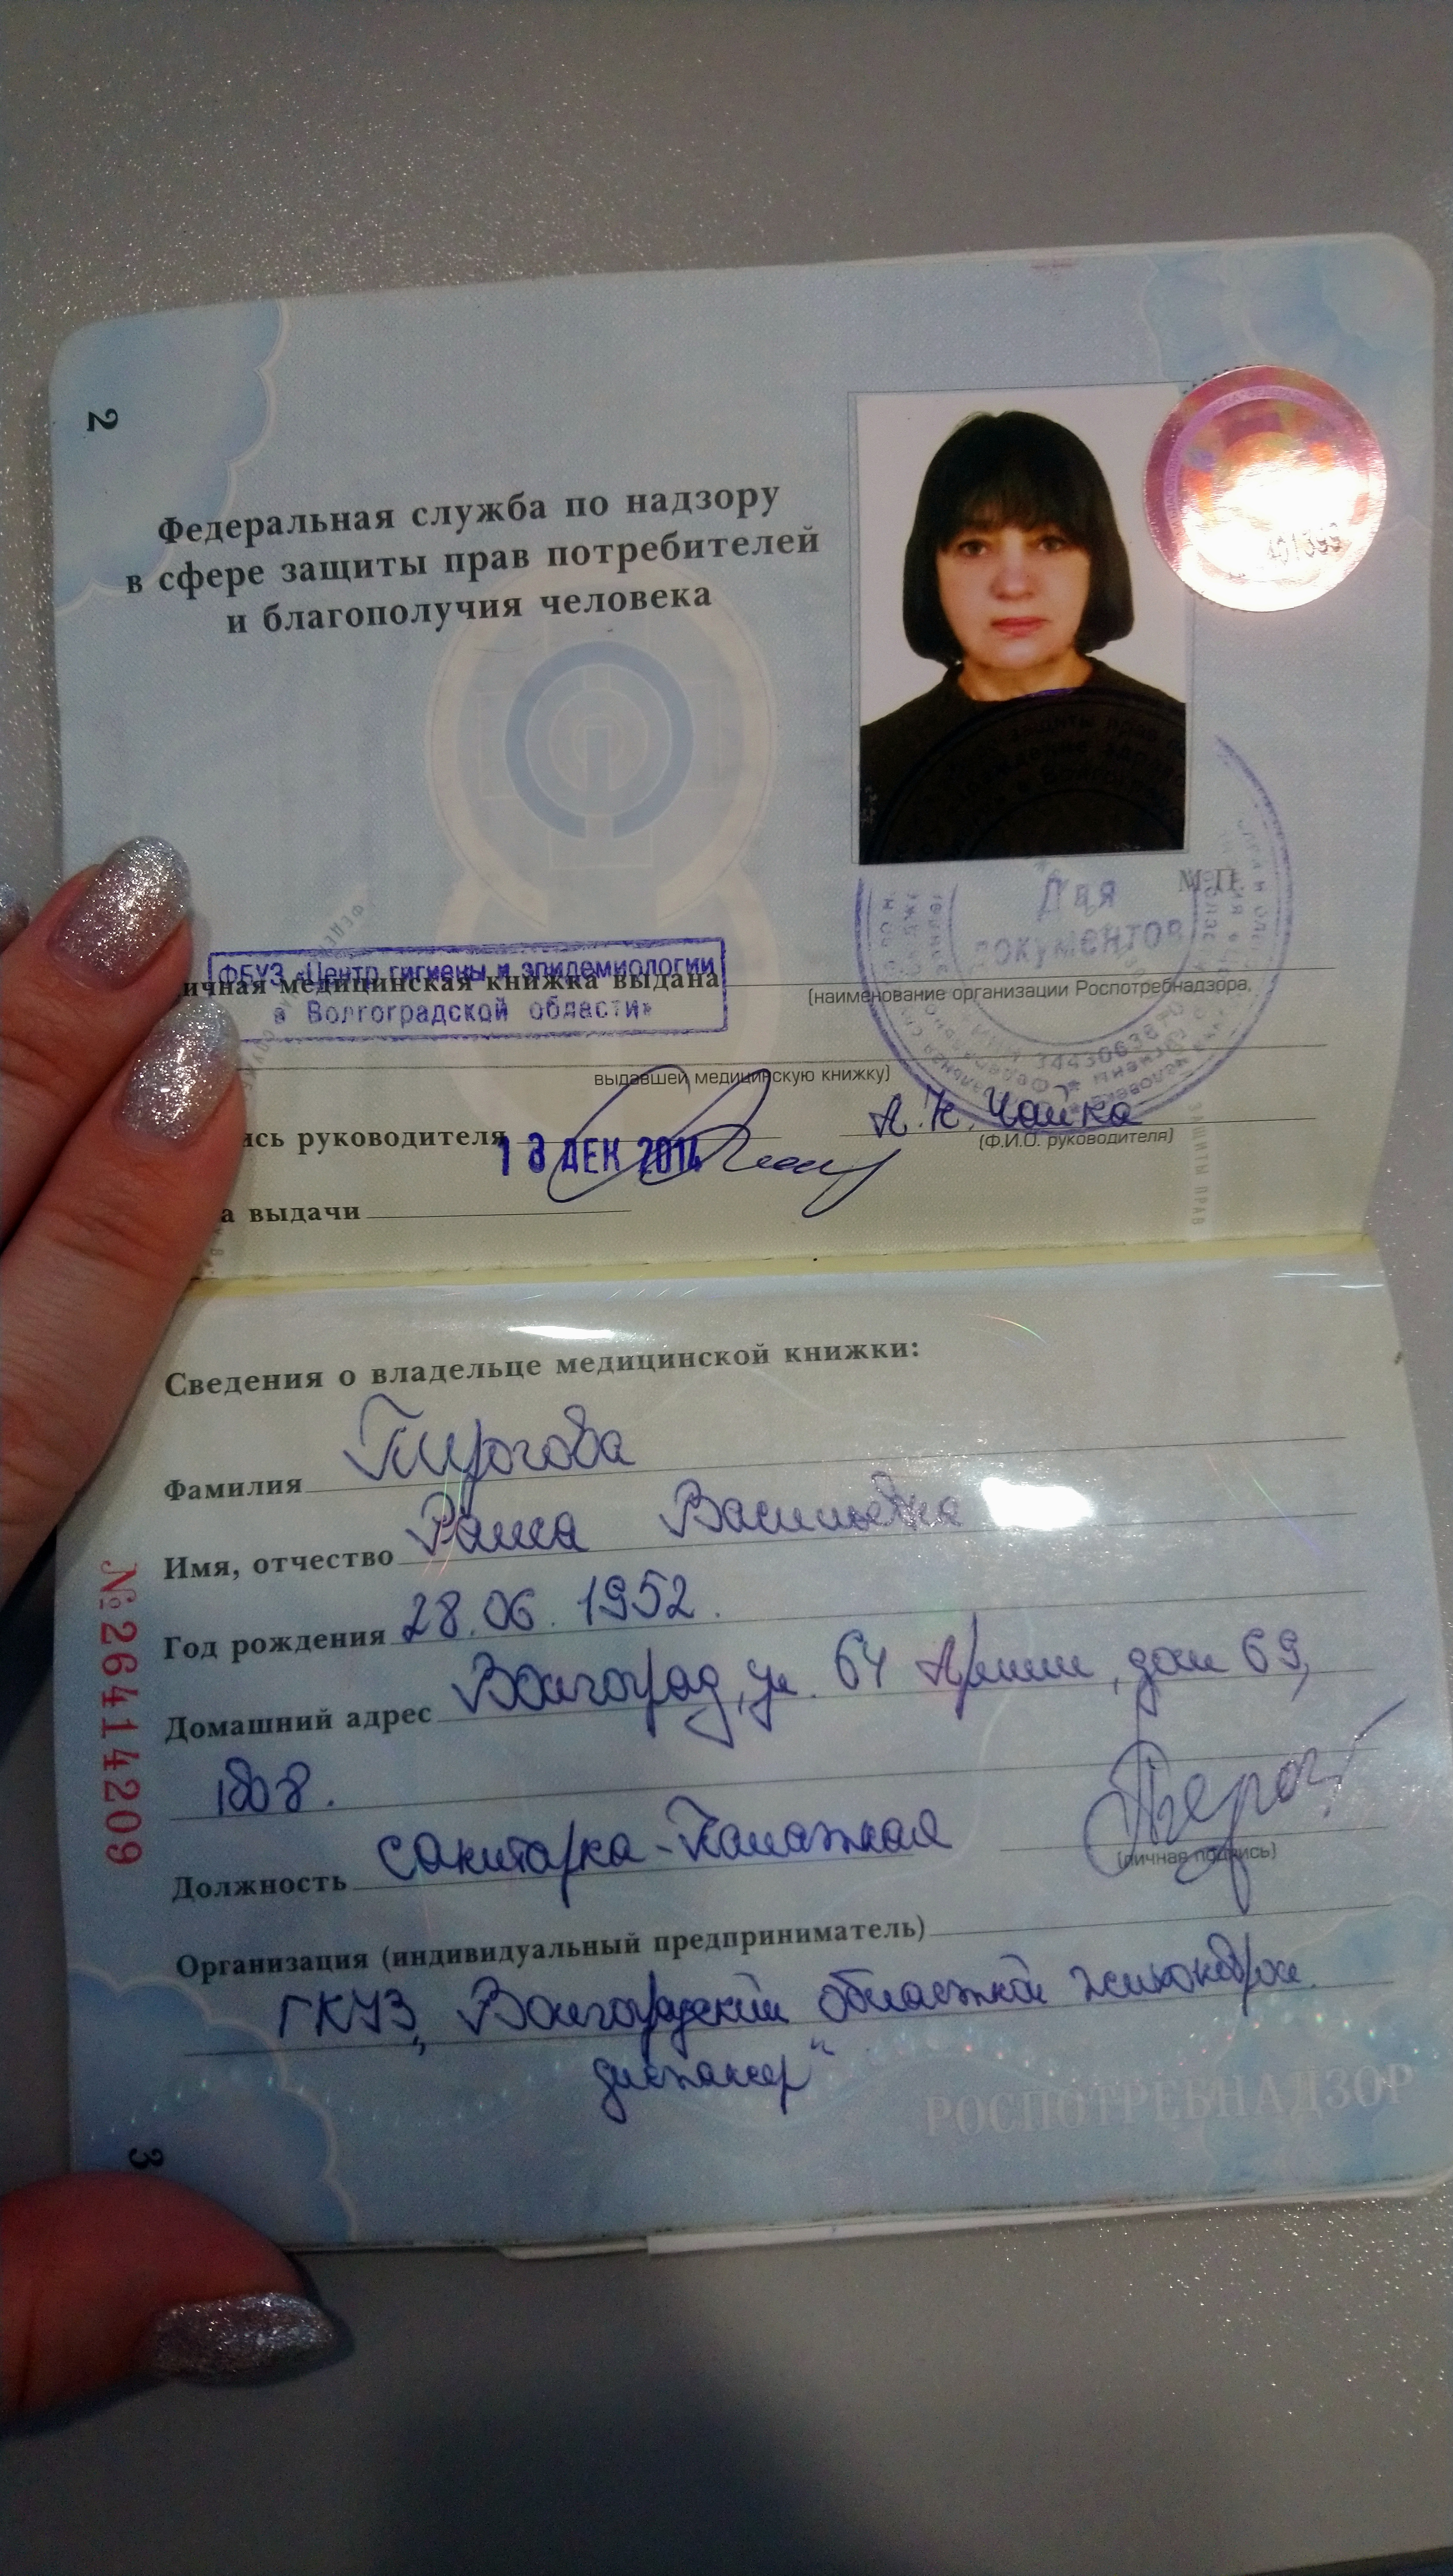 2
Федеральная служба по надзору
в сфере защиты прав потребителей
и благополучия человека
М.П.
Для
документов
ФБУЗ «Центр гигиены и эпидемиологии
в Волгоградской области»
ичная медицинская книжка выдана
(наименование организации Роспотребнадзора,
выдавшей медицинскую книжку)
ись руководителя
А.К. Чайка
(Ф.И.О. руководителя)
13 ДЕК 2014
а выдачи
ЗАЩИТЫ ПРАВ
Сведения о владельце медицинской книжки:
Фамилия Пирогова
Имя, отчество Раиса Васильевна
Год рождения 28.06.1952.
Домашний адрес Волгоград, ул. 64 Армии, дом 69,
Должность санитарка-палатная
(личная подпись)
Организация (индивидуальный предприниматель)
ГКУЗ „Волгоградский областной
диспансер“
РОСПОТРЕБНАДЗОР
№26414209
3